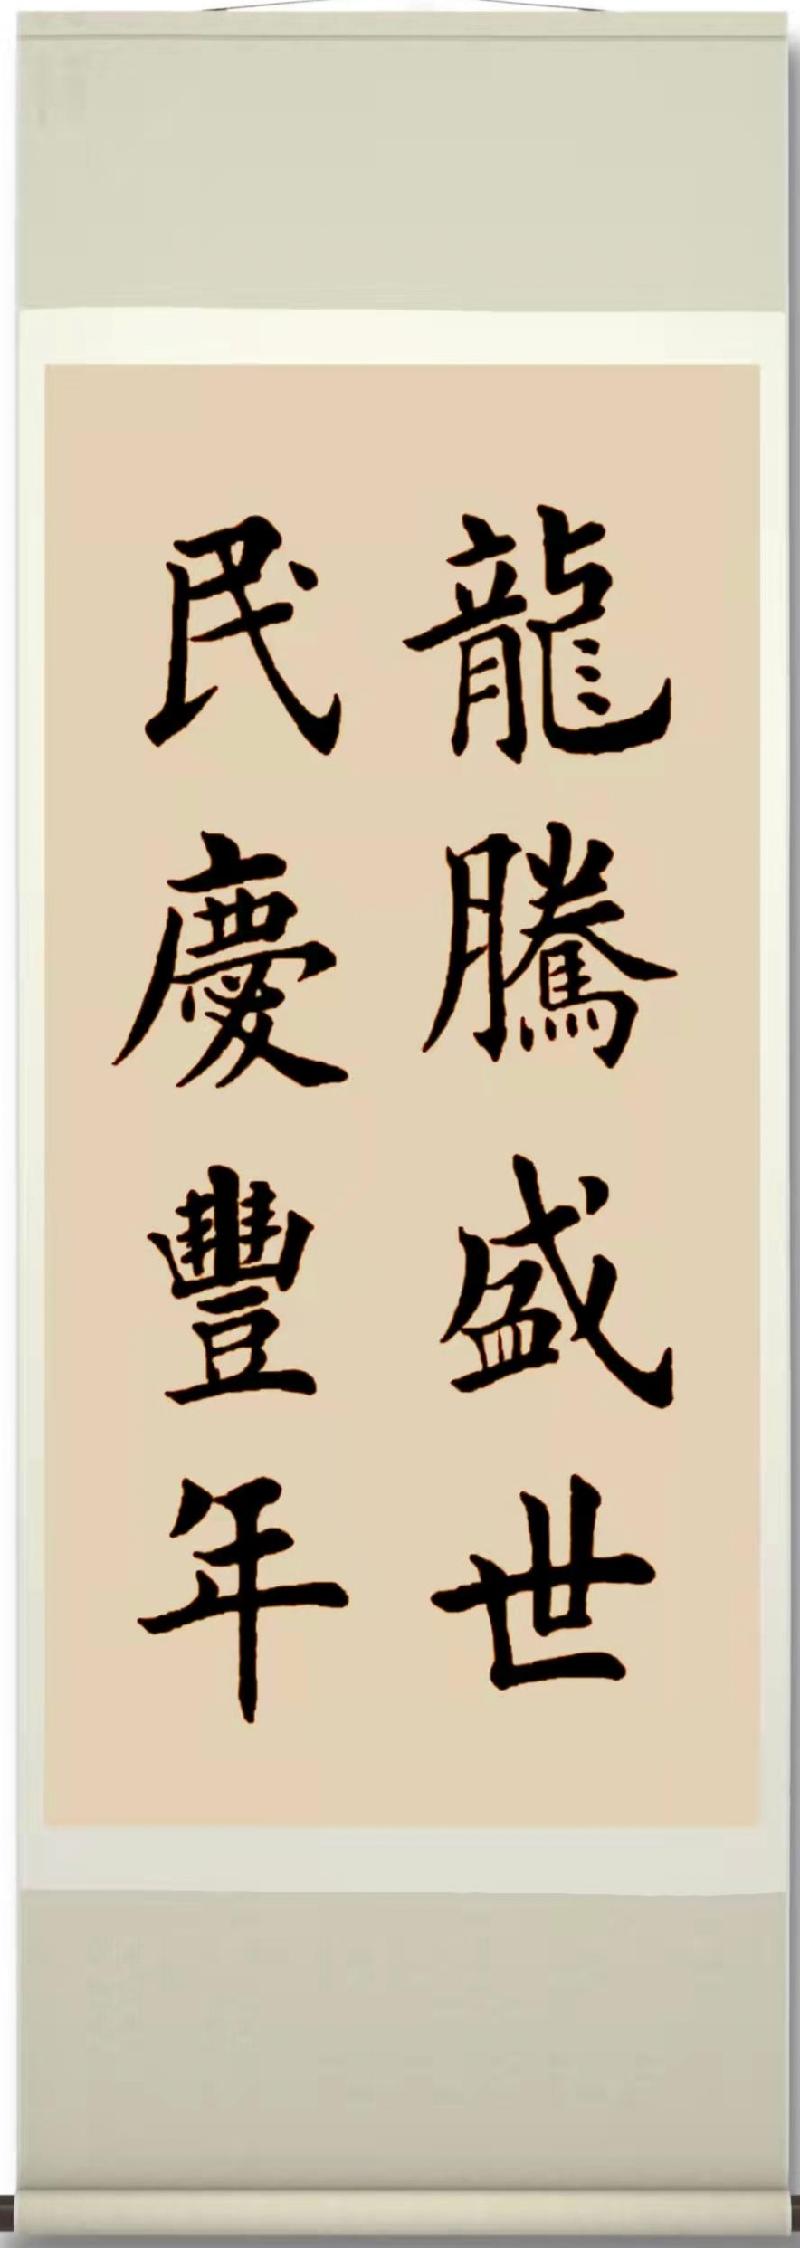 龍騰盛世
民慶豐年